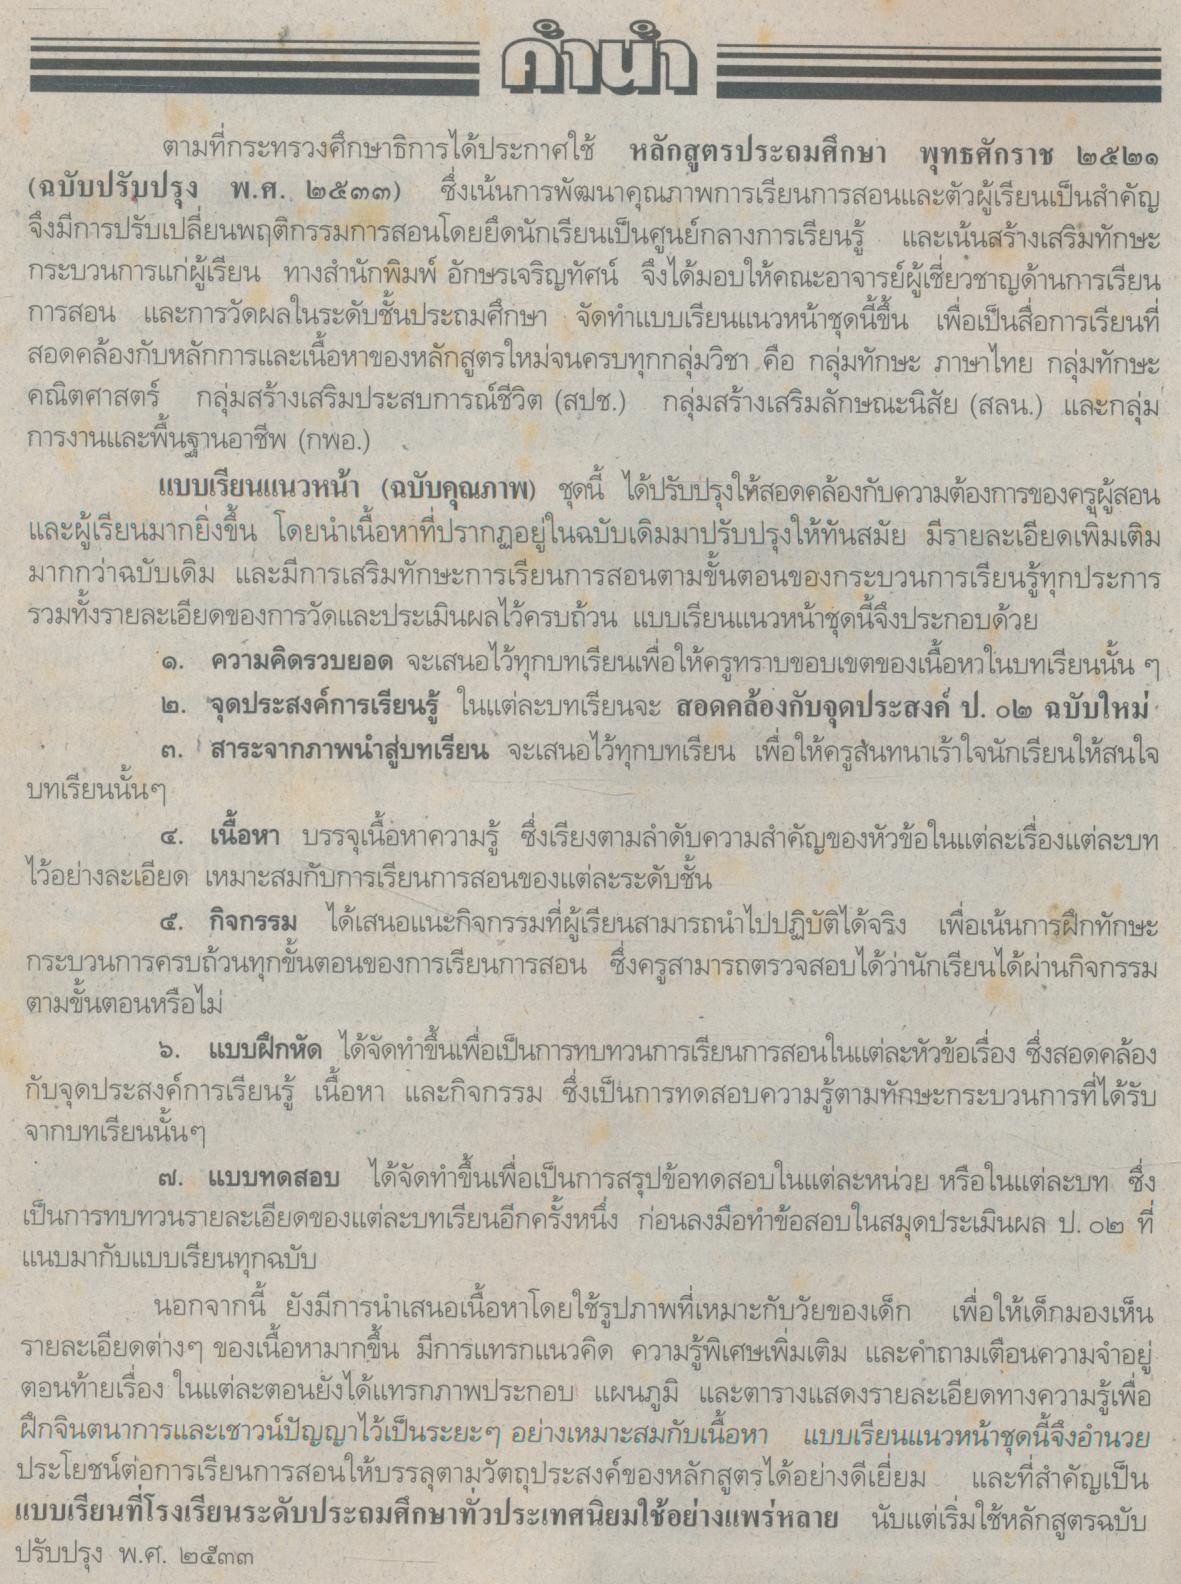 คำนำ
ตามที่กระทรวงศึกษาธิการได้ประกาศใช้ หลักสูตรประถมศึกษา พุทธศักราช ๒๕๒๑
(ฉบับปรับปรุง พ.ศ. ๒๕๓๓) ซึ่งเน้นการพัฒนาคุณภาพการเรียนการสอนและตัวผู้เรียนเป็นสำคัญ
จึงมีการปรับเปลี่ยนพฤติกรรมการสอนโดยยึดนักเรียนเป็นศูนย์กลางการเรียนรู้ และเน้นสร้างเสริมทักษะ
กระบวนการแก่ผู้เรียน ทางสำนักพิมพ์ อักษรเจริญทัศน์ จึงได้มอบให้คณะอาจารย์ผู้เชี่ยวชาญด้านการเรียน
การสอน และการวัดผลในระดับชั้นประถมศึกษา จัดทำแบบเรียนแนวหน้าชุดนี้ขึ้น เพื่อเป็นสื่อการเรียนที่
สอดคล้องกับหลักการและเนื้อหาของหลักสูตรใหม่จนครบทุกกลุ่มวิชา คือ กลุ่มทักษะ ภาษาไทย กลุ่มทักษะ
คณิตศาสตร์ กลุ่มสร้างเสริมประสบการณ์ชีวิต (สปช.) กลุ่มสร้างเสริมลักษณะนิสัย (สลน.) และกลุ่ม
การงานและพื้นฐานอาชีพ (กพอ.)
แบบเรียนแนวหน้า (ฉบับคุณภาพ) ชุดนี้ ได้ปรับปรุงให้สอดคล้องกับความต้องการของครูผู้สอน
และผู้เรียนมากยิ่งขึ้น โดยนำเนื้อหาที่ปรากฏอยู่ในฉบับเดิมมาปรับปรุงให้ทันสมัย มีรายละเอียดเพิ่มเติม
มากกว่าฉบับเดิม และมีการเสริมทักษะการเรียนการสอนตามขั้นตอนของกระบวนการเรียนรู้ทุกประการ
รวมทั้งรายละเอียดของการวัดและประเมินผลไว้ครบถ้วน แบบเรียนแนวหน้าชุดนี้จึงประกอบด้วย
๑. ความคิดรวบยอด จะเสนอไว้ทุกบทเรียนเพื่อให้ครูทราบขอบเขตของเนื้อหาในบทเรียนนั้น ๆ
๒. จุดประสงค์การเรียนรู้ ในแต่ละบทเรียนจะ สอดคล้องกับจุดประสงค์ ป. ๐๒ ฉบับใหม่
๓. สาระจากภาพนำสู่บทเรียน จะเสนอไว้ทุกบทเรียน เพื่อให้ครูสนทนาเร้าใจนักเรียนให้สนใจ
บทเรียนนั้นๆ
๔. เนื้อหา บรรจุเนื้อหาความรู้ ซึ่งเรียงตามลำดับความสำคัญของหัวข้อในแต่ละเรื่องแต่ละบท
ไว้อย่างละเอียด เหมาะสมกับการเรียนการสอนของแต่ละระดับชั้น
๕. กิจกรรม ได้เสนอแนะกิจกรรมที่ผู้เรียนสามารถนำไปปฏิบัติได้จริง เพื่อเน้นการฝึกทักษะ
กระบวนการครบถ้วนทุกขั้นตอนของการเรียนการสอน ซึ่งครูสามารถตรวจสอบได้ว่านักเรียนได้ผ่านกิจกรรม
ตามขั้นตอนหรือไม่
๖. แบบฝึกหัด ได้จัดทำขึ้นเพื่อเป็นการทบทวนการเรียนการสอนในแต่ละหัวข้อเรื่อง ซึ่งสอดคล้อง
กับจุดประสงค์การเรียนรู้ เนื้อหา และกิจกรรม ซึ่งเป็นการทดสอบความรู้ตามทักษะกระบวนการที่ได้รับ
จากบทเรียนนั้นๆ
๗. แบบทดสอบ ได้จัดทำขึ้นเพื่อเป็นการสรุปข้อทดสอบในแต่ละหน่วย หรือในแต่ละบท ซึ่ง
เป็นการทบทวนรายละเอียดของแต่ละบทเรียนอีกครั้งหนึ่ง ก่อนลงมือทำข้อสอบในสมุดประเมินผล ป. ๐๒ ที่
แนบมากับแบบเรียนทุกฉบับ
นอกจากนี้ ยังมีการนำเสนอเนื้อหาโดยใช้รูปภาพที่เหมาะกับวัยของเด็ก เพื่อให้เด็กมองเห็น
รายละเอียดต่างๆ ของเนื้อหามากขึ้น มีการแทรกแนวคิด ความรู้พิเศษเพิ่มเติม และคำถามเตือนความจำอยู่
ตอนท้ายเรื่อง ในแต่ละตอนยังได้แทรกภาพประกอบ แผนภูมิ และตารางแสดงรายละเอียดทางความรู้เพื่อ
ฝึกจินตนาการและเชาวน์ปัญญาไว้เป็นระยะๆ อย่างเหมาะสมกับเนื้อหา แบบเรียนแนวหน้าชุดนี้จึงอำนวย
ประโยชน์ต่อการเรียนการสอนให้บรรลุตามวัตถุประสงค์ของหลักสูตรได้อย่างดีเยี่ยม และที่สำคัญเป็น
แบบเรียนที่โรงเรียนระดับประถมศึกษาทั่วประเทศนิยมใช้อย่างแพร่หลาย นับแต่เริ่มใช้หลักสูตรฉบับ
ปรับปรุง พ.ศ. ๒๕๓๓